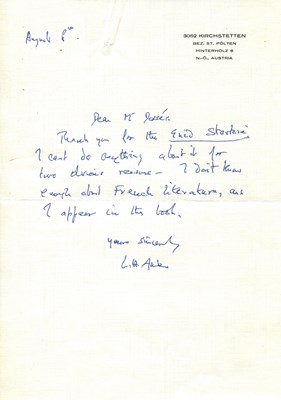 3062 KIRCHSTETTEN
BEZ. ST. PÖLTEN
HINTERHOLZ 6
N.-Ö., AUSTRIA
August 8th
Dear Mr
Thank you for the Enid Starkie
I can't do anything about it for
two obvious reasons – I don't know
enough about French Literature, and
I appear in the book.
Yours sincerely